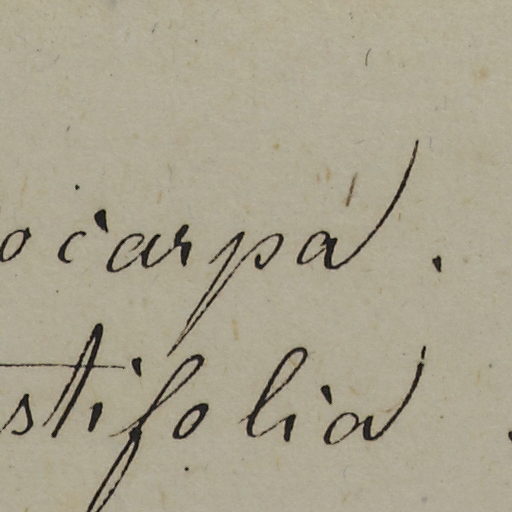 ocarpa.
stifolia.